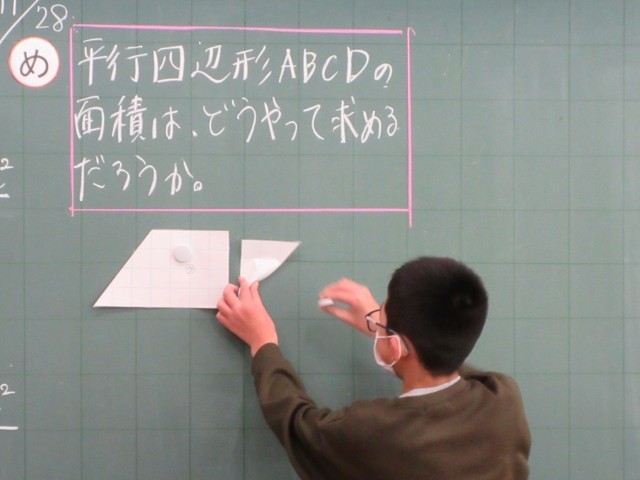 11/28
め
平行四辺形ABCDの
面積は、どうやって求める
だろうか。
2
2